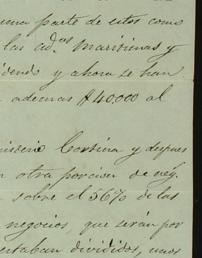 una parte de estos como
las ad.as Maritimas y
dendo y ahora se han
ademas $40.000 al
nisterio Cortina y despues
n otra porcion de neg.
sobre el 56% de las
negocios, que serán por
estaban divididos, unos